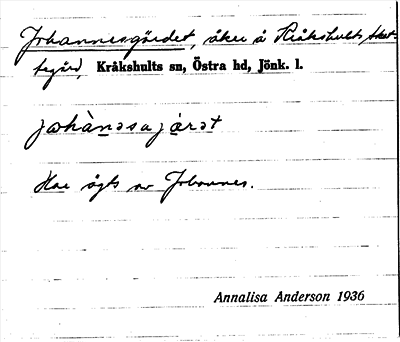 Johannesgärdet, åker å Kråkshults skat-
tegård, Kråkshults sn, Östra hd, Jönk. l.
johànəsajárət
Har ägts av Johannes.
Annalisa Anderson 1936